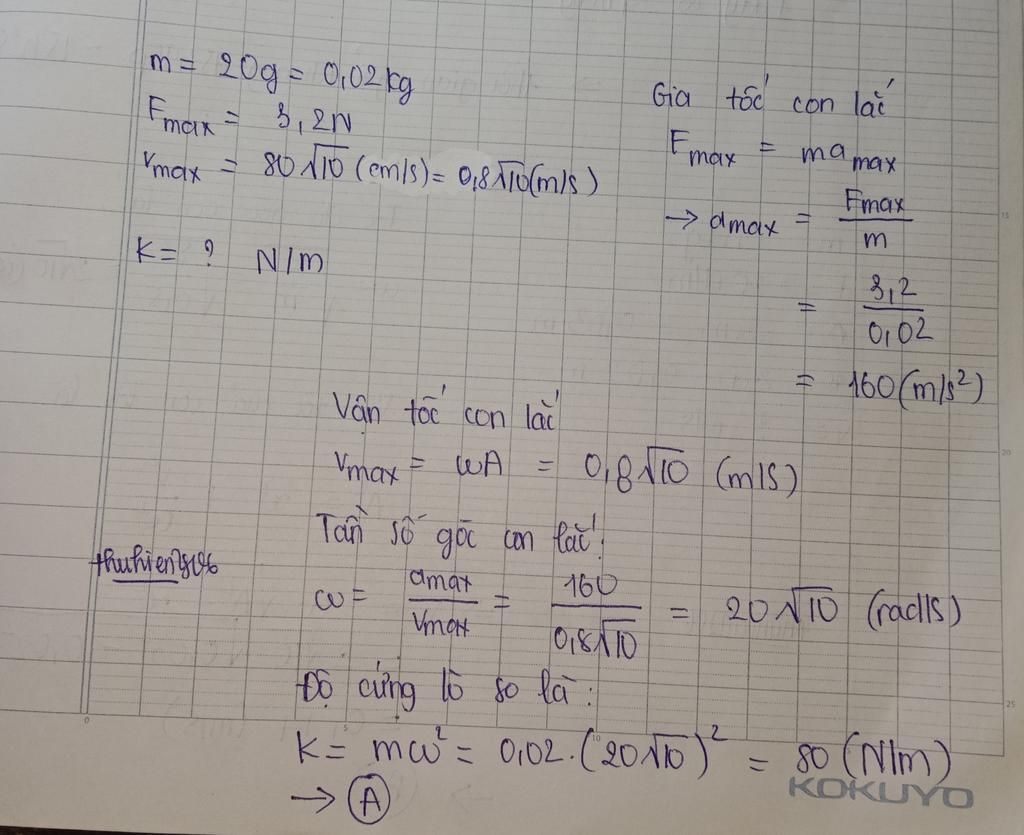 m = 20g = 0,02kg
Fmax = 3,2N
vmax = 80√10 (cm/s) = 0,8√10 (m/s)
K = ? N/m
Gia tốc con lắc
Fmax = mamax
→ amax = Fmax/m
= 3,2/0,02
= 160 (m/s²)
Vận tốc con lắc
vmax = ωA = 0,8√10 (m/s)
Tần số góc con lắc:
ω = amax/vmax = 160/0,8√10 = 20√10 (rad/s)
Độ cứng lò so là:
K = mω² = 0,02.(20√10)² = 80 (N/m)
→ A
KOKUYO
5
10
15
20
25
0